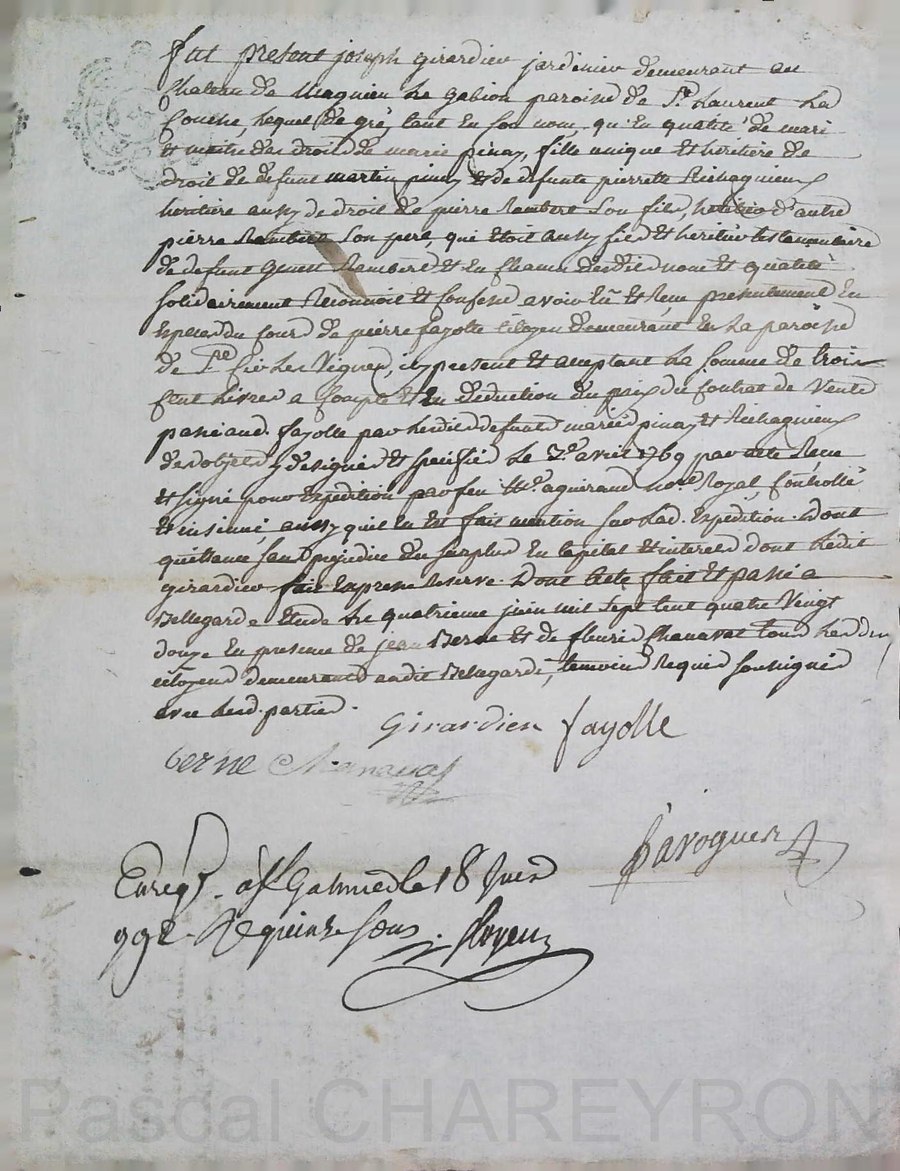 fut present joseph girardien jardinier demeurant au
Chateau de Magnieu le gabion paroisse de St. Laurent La
Conche, lequel de gré, tant en son nom qu'en qualité de mari
et maitre des droits de marie pinay, fille unique et heritiere de
droit de defunt martin pinay et de defunte pierrette Richagnieux
heritiere aussy de droit de pierre Rambert son fils, heritier d'autre
pierre Rambert son pere, qui étoit aussy fils et heritier testamentaire
de defunt Rambert et en chacun desdits noms et qualités
solidairement Reconnoit et Confesse avoir eû et Reçu presentement en
Especes du Cours de pierre fayolle Citoyen demeurant en La paroisse
de St. Cir Les Vignes, icy present et acceptant La somme de trois
Cent Livres a Compte et en deduction du prix du Contrat de Vente
passé aud. fayolle par lesdits defunts mariés pinay et Richagnieux
des objets y designés et specifiés Le 7e. avril 1769 par acte Reçu
et signé pour Expedition par feu Me. aguiraud no.re Royal, Controllé
et insinué, aussy quil en est fait mention sur Lad. Expédition. Dont
quittance sauf prejudice du surplus en Capital et interets dont Ledit
girardien fait Expresse Reserve. Dont Acte fait et passé a
Bellegarde Etude Le quatrieme juin mil sept cent quatre Vingt
douze En presence de jean Berne et de fleuri Chanavat tous Les deux
citoyens demeurants audit Bellegarde, temoins Requis soussignés
avec lesd. parties.
Girardien fayolle
berne Chanavat
Enregt. à St Galmier le 18 Juin
992. Rç quinze sous.
Pascal CHAREYRON